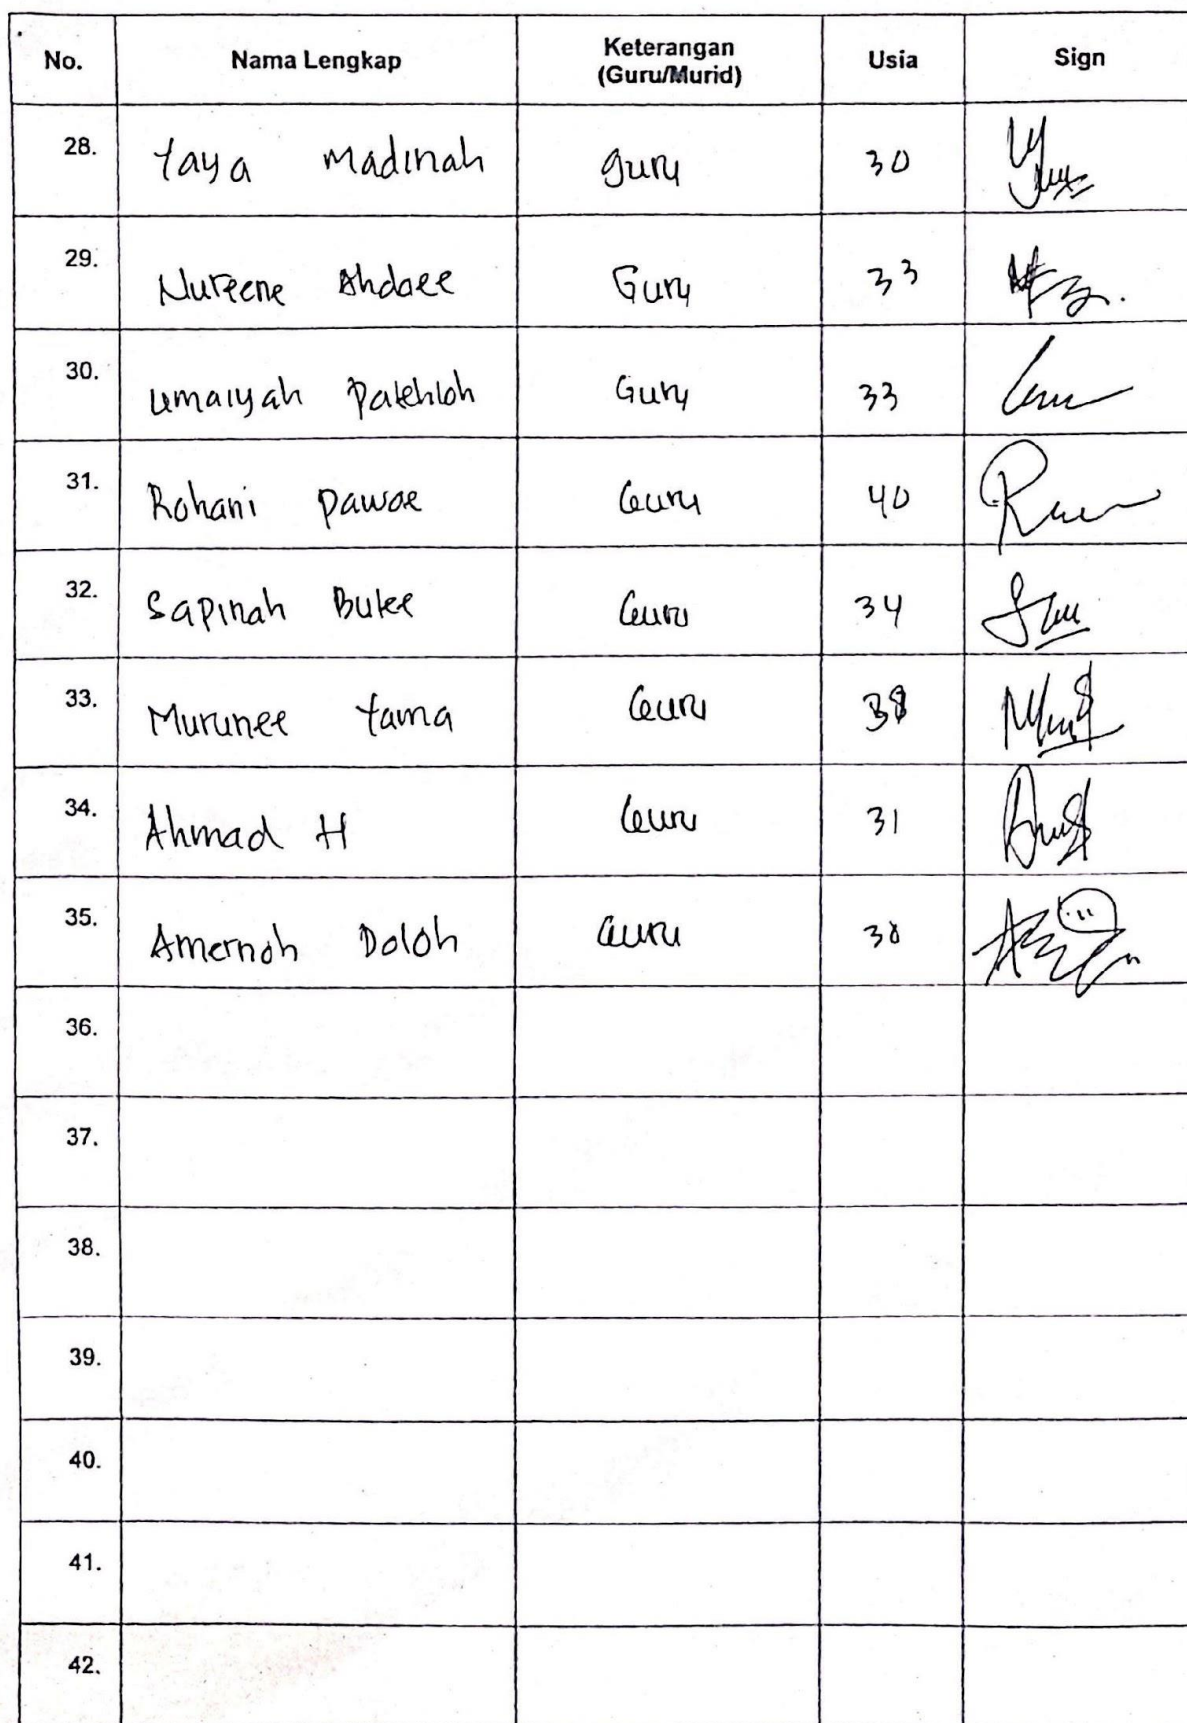 No. Nama Lengkap Keterangan (Guru/Murid) Usia Sign
28. Yaya Madinah guru 30
29. Nureene Ahdaee Guru 33
30. Umaiyah Patehloh Guru 33
31. Rohani Pawae Guru 40
32. Sapinah Butee Guru 34
33. Murunee Yama Guru 38
34. Ahmad H Guru 31
35. Amernoh Doloh Guru 38
36.
37.
38.
39.
40.
41.
42.